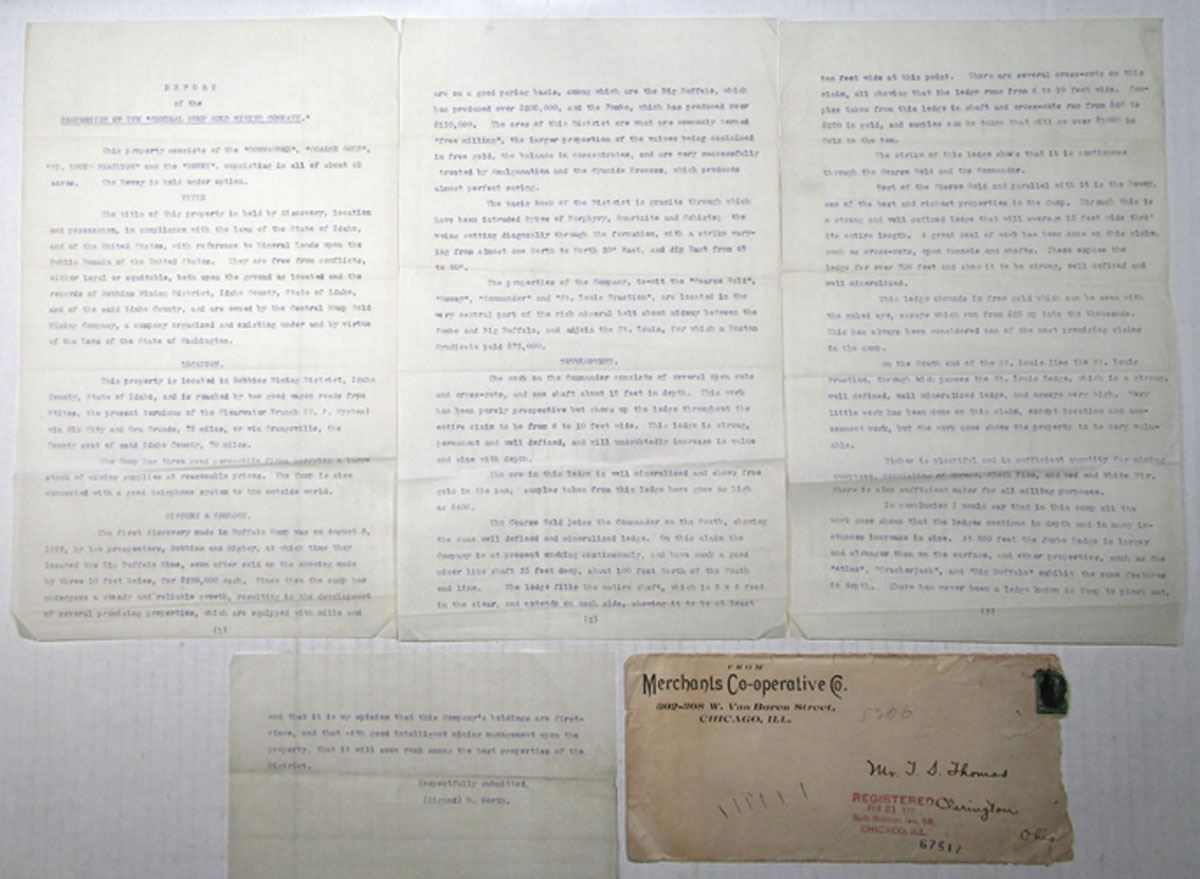 REPORT
of the
PROPERTIES OF THE "CENTRAL HUMP GOLD MINING COMPANY."
This property consists of the "COMMANDER", "COARSE GOLD",
"ST. LOUIS FRACTION" and the "DEWEY", consisting in all of about 65
acres. The Dewey is held under option.
TITLE
The title of this property is held by discovery, location
and possession, in compliance with the laws of the State of Idaho,
and of the United States, with reference to Mineral Lands upon the
Public Domain of the United States. They are free from conflicts,
either legal or equitable, both upon the ground as located and the
records of Robbins Mining District, Idaho County, State of Idaho,
and of the said Idaho County, and are owned by the Central Hump Gold
Mining Company, a company organized and existing under and by virtue
of the laws of the State of Washington.
LOCATION.
This property is located in Robbins Mining District, Idaho
County, State of Idaho, and is reached by two good wagon roads from
Stites, the present terminus of the Clearwater Branch (N. P. System)
via Elk City and Oro Grande, 75 miles, or via Grangeville, the
County seat of said Idaho County, 70 miles.
The Camp has three good mercantile firms carrying a large
stock of mining supplies at reasonable prices. The Camp is also
connected with a good telephone system to the outside world.
HISTORY & GEOLOGY.
The first discovery made in Buffalo Hump was on August 8,
1898, by two prospectors, Robbins and Rigley, at which time they
located the Big Buffalo Mine, soon after sold on the showing made
by three 10 foot holes, for cash. Since then the camp has
undergone a steady and reliable growth, resulting in the development
of several promising properties, which are equipped with mills and
(1)
are on a good paying basis, among which are the Big Buffalo, which
has produced over $200,000, and the Jumbo, which has produced over
$150,000. The ores of this District are what are commonly termed
"free milling", the larger proportion of the values being contained
in free gold, the balance in concentrates, and are very successfully
treated by Amalgamation and the Cyanide Process, which produces
almost perfect saving.
The basic Rock of the District is granite through which
have been intruded Dykes of Porphyry, Quartzite and Schists; the
veins cutting diagonally through the formation, with a strike vary-
ing from almost due North to North 20° East, and dip East from 45
to
The properties of the Company, to-wit the "Coarse Gold",
"Dewey", "Commander" and "St. Louis Fraction", are located in the
very central part of the rich mineral belt about midway between the
Jumbo and Big Buffalo, and adjoin the St. Louis, for which a Boston
Syndicate paid $75,000.
DEVELOPMENT.
The work on the Commander consists of several open cuts
and cross-cuts, and one shaft about 15 feet in depth. This work
has been purely prospective but shows up the ledge throughout the
entire claim to be from 6 to 10 feet wide. This ledge is strong,
permanent and well defined, and will undoubtedly increase in value
and size with depth.
The ore in this ledge is well mineralized and shows free
gold in the pan; samples taken from this ledge have gone as high
as $400.
The Coarse Gold joins the Commander on the South, showing
the same well defined and mineralized ledge. On this claim the
Company is at present working continuously, and have sunk a good
miner like shaft 35 feet deep, about 100 feet North of the South
end line. The ledge fills the entire shaft, which is feet
in the clear, and extends on each side, showing it to be at least
(2)
ten feet wide at this point. There are several cross-cuts on this
claim, all showing that the ledge runs from 6 to 10 feet wide. Sam-
ples taken from this ledge in shaft and cross-cuts run from to
$250 in gold, and samples can be taken that will go over $1000 in
Gold to the ton.
The strike of this ledge shows that it is continuous
through the Coarse Gold and the Commander.
West of the Coarse Gold and parallel with it is the Dewey,
one of the best and richest properties in the Camp. Through this is
a strong and well defined ledge that will average 15 feet wide thro'
its entire length. A great deal of work has been done on this claim,
such as cross-cuts, open tunnels and shafts. These expose the
ledge for over 700 feet and show it to be strong, well defined and
well mineralized.
This ledge abounds in free gold which can be seen with
the naked eye, assays which run from $25 up into the thousands.
This has always been considered one of the most promising claims
in the camp.
On the South end of the St. Louis lies the St. Louis
Fraction, through which passes the St. Louis Ledge, which is a strong,
well defined, well mineralized ledge, and assays very high. Very
little work has been done on this claim, except location and ass-
essment work, but the work done shows the property to be very valu-
able.
Timber is plentiful and in sufficient quantity for mining
purposes, consisting of Spruce, Black Pine, and Red and White Fir.
There is also sufficient water for all milling purposes.
In conclusion I would say that in this camp all the
work done shows that the ledges continue in depth and in many in-
stances increase in size. At 500 feet the Jumbo Ledge is larger
and stronger than on the surface, and other properties, such as the
"Atlas", "Crackerjack", and "Big Buffalo" exhibit the same features
in depth. There has never been a ledge known in Camp to pinch out,
(3)
and that it is my opinion that this Company's holdings are first-
class, and that with good intelligent mining management upon the
property, that it will soon rank among the best properties of the
District.
Respectfully submitted,
(Signed) D. North.
FROM
Merchants Co-operative Co.
302-308 W. Van Buren Street,
CHICAGO, ILL.
5206
Mr. T. S. Thomas
Clarington
Ohio
REGISTERED
FEB 21
Sub Station No. 50,
CHICAGO, ILL.
67517